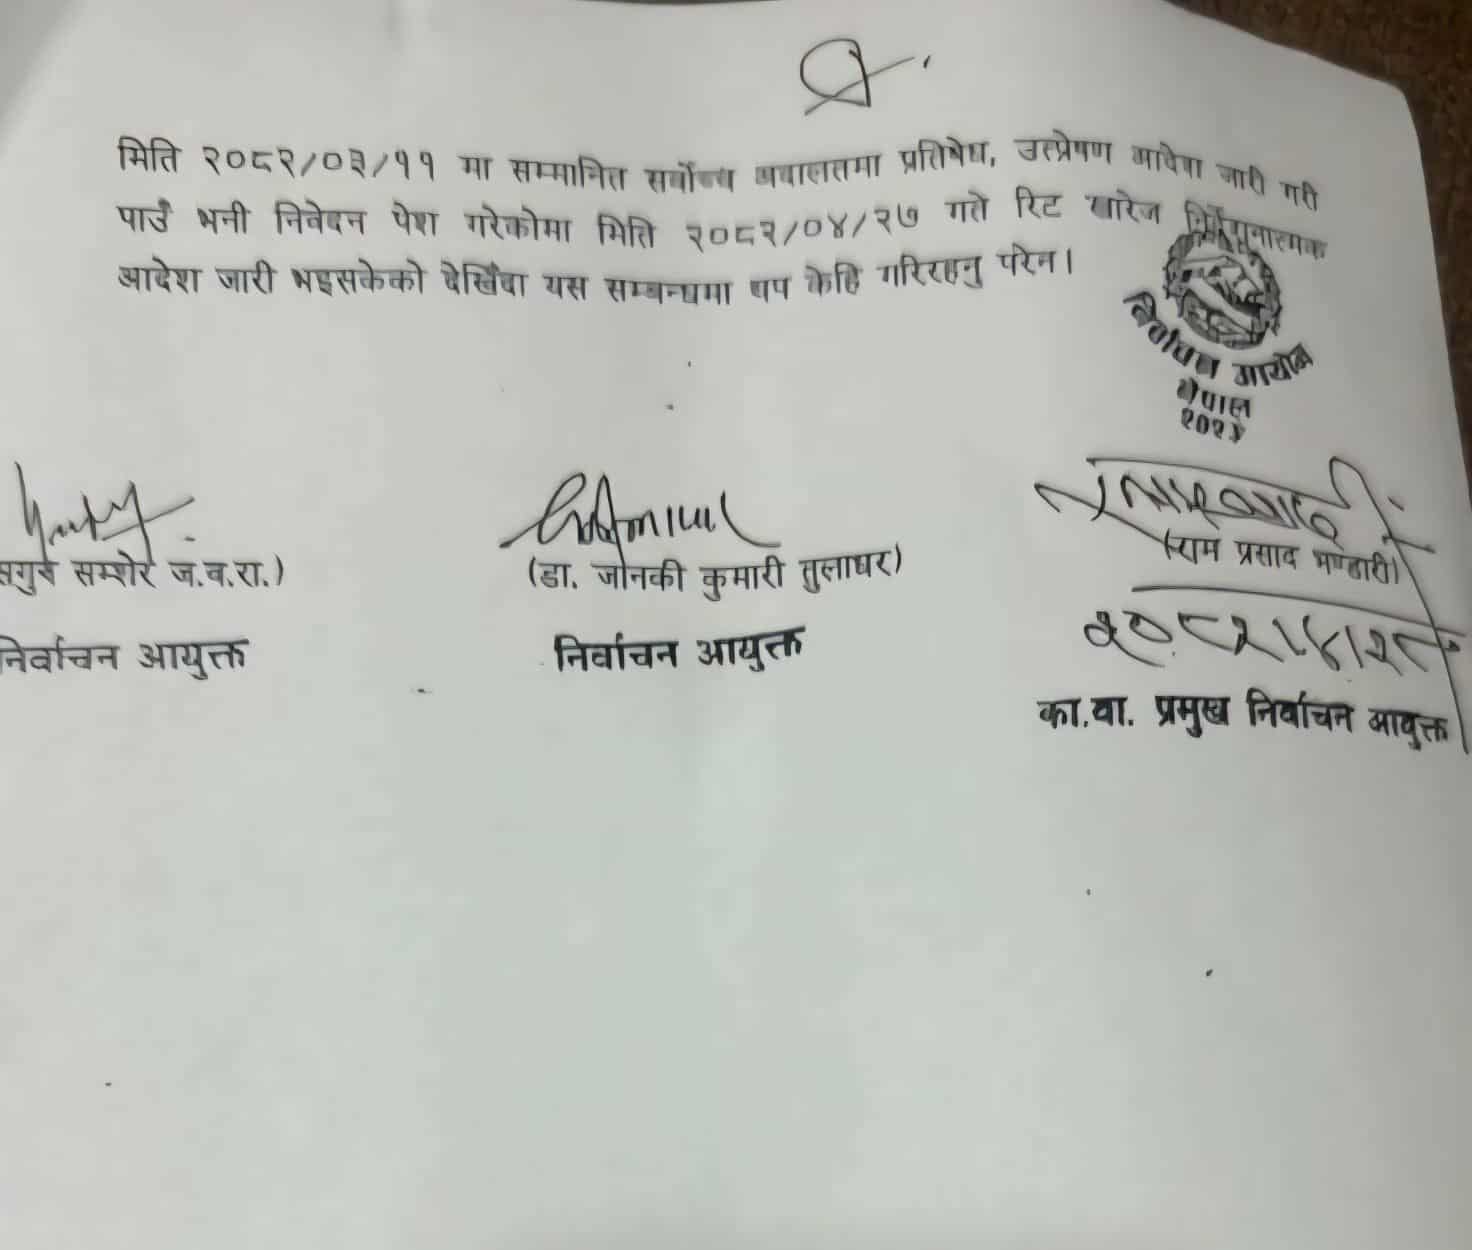 मिति २०८२/०३/११ मा सम्मानित सर्वोच्च अदालतमा प्रतिषेध, उत्प्रेषण आदेश जारी गरी
पाउँ भनी निवेदन पेश गरेकोमा मिति २०८२/०४/२७ गते रिट खारेज निर्णयात्मक
आदेश जारी भइसकेको देखिँदा यस सम्बन्धमा थप केहि गरिरहनु परेन।
निर्वाचन आयोग
नेपाल
सगुन सम्शेर ज.व.रा.)
(डा. जानकी कुमारी तुलाधर)
(राम प्रसाद भण्डारी)
२०८२।४।२८
निर्वाचन आयुक्त
निर्वाचन आयुक्त
का.वा. प्रमुख निर्वाचन आयुक्त